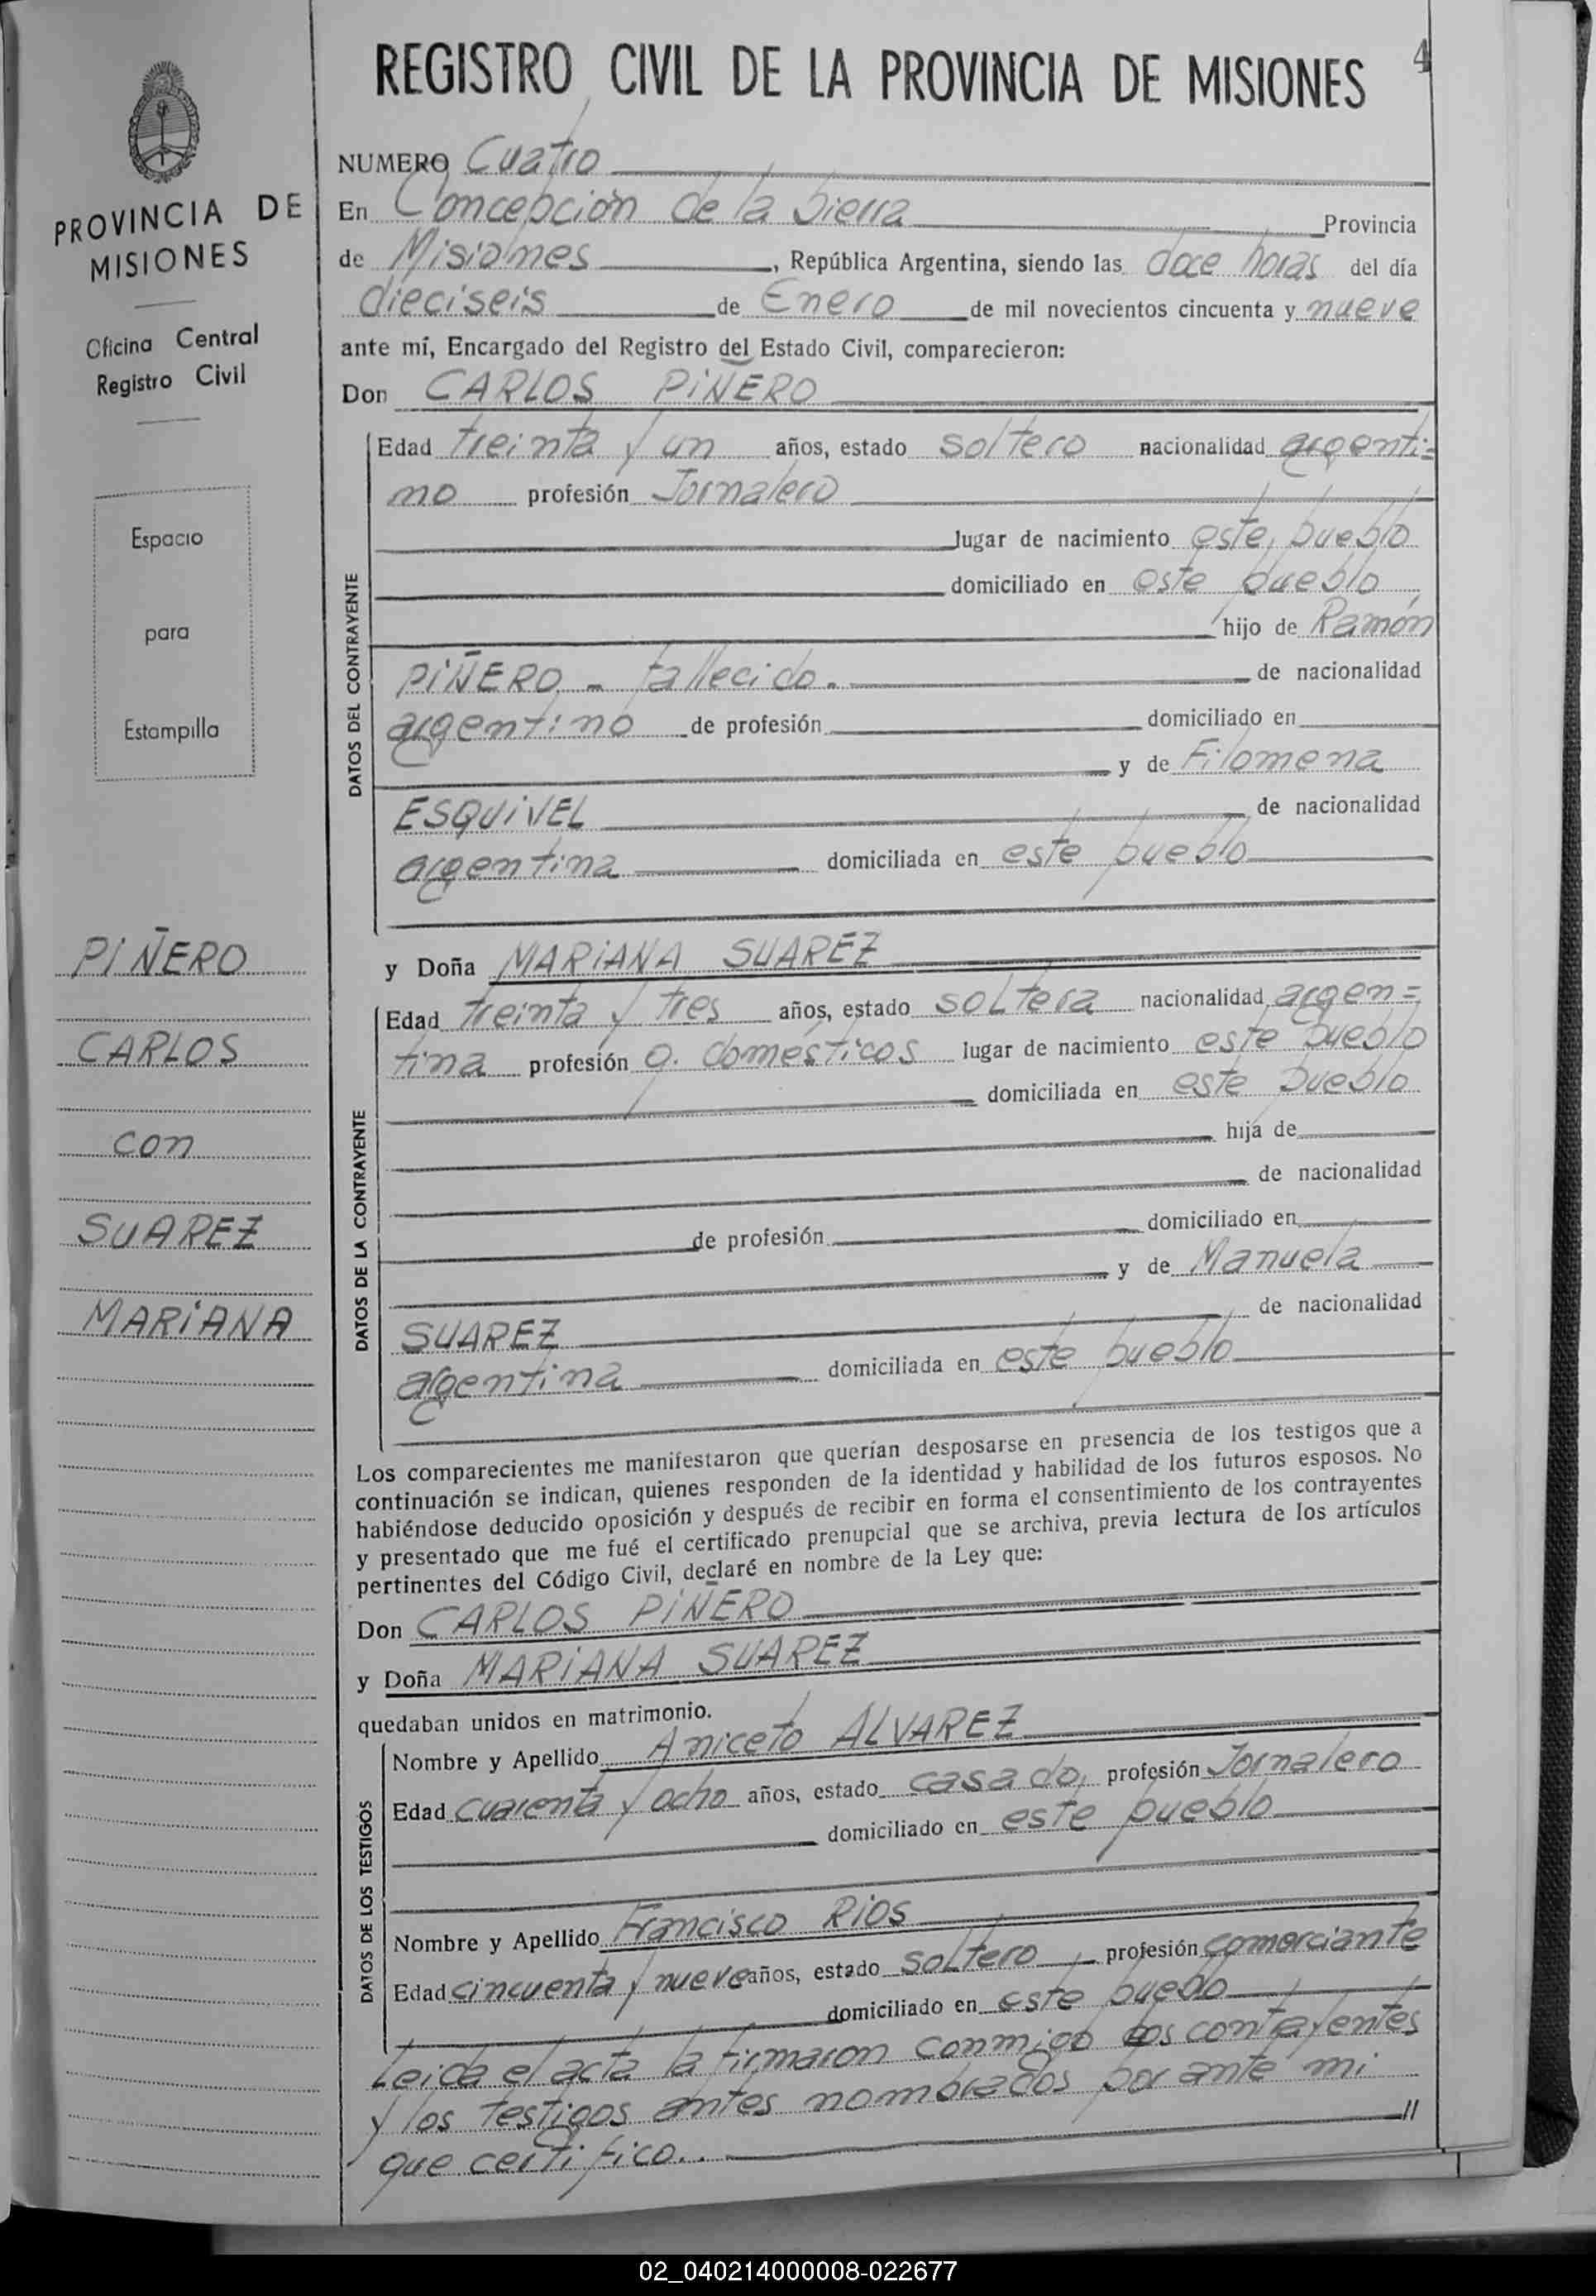 REGISTRO CIVIL DE LA PROVINCIA DE MISIONES 4
PROVINCIA DE
MISIONES
Oficina Central
Registro Civil
Espacio
para
Estampilla
PIÑERO
CARLOS
con
SUAREZ
MARIANA
NUMERO Cuatro
En Concepción de la Sierra Provincia
de Misiones, República Argentina, siendo las doce horas del día
dieciseis de Enero de mil novecientos cincuenta y nueve
ante mí, Encargado del Registro del Estado Civil, comparecieron:
Don CARLOS PIÑERO
DATOS DEL CONTRAYENTE
Edad treinta y un años, estado soltero nacionalidad argenti=
no profesión Jornalero
lugar de nacimiento este pueblo
domiciliado en este pueblo
hijo de Ramón
PIÑERO - fallecido.- de nacionalidad
argentino de profesión domiciliado en
y de Filomena
ESQUIVEL de nacionalidad
argentina domiciliada en este pueblo
y Doña MARIANA SUAREZ
DATOS DE LA CONTRAYENTE
Edad treinta y tres años, estado soltera nacionalidad argen=
tina profesión q. domésticos lugar de nacimiento este pueblo
domiciliada en este pueblo
hija de
de nacionalidad
de profesión domiciliado en
y de Manuela
SUAREZ de nacionalidad
argentina domiciliada en este pueblo
Los comparecientes me manifestaron que querían desposarse en presencia de los testigos que a
continuación se indican, quienes responden de la identidad y habilidad de los futuros esposos. No
habiéndose deducido oposición y después de recibir en forma el consentimiento de los contrayentes
y presentado que me fué el certificado prenupcial que se archiva, previa lectura de los artículos
pertinentes del Código Civil, declaré en nombre de la Ley que:
Don CARLOS PIÑERO
y Doña MARIANA SUAREZ
quedaban unidos en matrimonio.
DATOS DE LOS TESTIGOS
Nombre y Apellido Aniceto ALVAREZ
Edad cuarenta y ocho años, estado casado, profesión Jornalero
domiciliado en este pueblo
Nombre y Apellido Francisco RIOS
Edad cincuenta y nueve años, estado soltero, profesión comerciante
domiciliado en este pueblo
Leida el acta la firmaron conmigo los contrayentes
y los testigos antes nombrados por ante mi
que certifico..
02_040214000008-022677